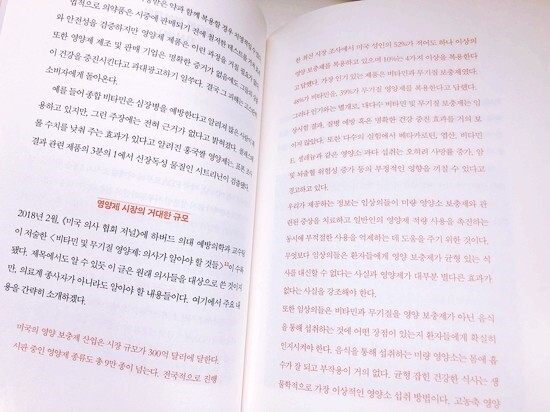 받은 약과 함께 복용할 경우
법적으로 의약품은 시중에 판매되기 전에 철저한 테스트를
와 안전성을 검증하지만 영양제 제품은 이런 과정을 거칠 필요
또한 영양제 제조 및 판매 기업은 명확한 증거가 없음에도 그들의
이 건강을 증진시킨다고 과대광고하기 일쑤다. 결국 그 피해는 고스란히
소비자에게 돌아온다.
예를 들어 종합 비타민은 심장병을 예방한다고 알려져
용하고 있지만, 그런 주장에는 전혀 근거가 없다고 밝혀졌다. 콜레스테
롤 수치를 낮춰 주는 효과가 있다고 알려진 홍국쌀 영양제는, 표본 조사
결과 관련 제품의 3분의 1에서 신장독성 물질인 시트리닌이 검출됐다.
영양제 시장의 거대한 규모
2018년 2월, 《미국 의사 협회 저널》에 하버드 의대 예방의학과 교수팀
이 저술한 <비타민 및 무기질 영양제: 의사가 알아야 할 것들>이 수록
됐다. 제목에서도 알 수 있듯 이 글은 원래 의사들을 대상으로 쓴 것이지
만, 의료계 종사자가 아니라도 알아야 할 내용들이다. 여기에서 주요 내
용을 간략히 소개하겠다.
미국의 영양 보충제 산업은 시장 규모가 300억 달러에 달한다.
시판 중인 영양제 종류도 총 9만 종이 넘는다. 전국적으로 진행
한 최신 시장 조사에서 미국 성인의 52%가 적어도 하나 이상의
영양 보충제를 복용하고 있으며 10%는 4가지 이상을 복용한다
고 답했다. 가장 인기 있는 제품은 비타민과 무기질 보충제였다.
48%가 비타민을, 39%가 무기질 영양제를 복용한다고 답했다.
그러나 인기와는 별개로, 대다수 비타민 및 무기질 보충제는 임
상시험 결과, 질병 예방 혹은 명확한 건강 증진 효과를 거의 보
이지 않았다. 또한 다수의 실험에서 베타카로틴, 엽산, 비타민
E, 셀레늄과 같은 영양소 과다 섭취는 오히려 사망률 증가, 암
및 뇌출혈 위험성 증가 등의 부정적인 영향을 끼칠 수 있다고
경고하고 있다.
우리가 제공하는 정보는 임상의들이 미량 영양소 보충제와 관
련된 증상을 치료하고 일반인의 영양제 적량 사용을 촉진하는
동시에 부적절한 사용을 억제하는 데 도움을 주기 위한 것이다.
무엇보다 임상의들은 환자들에게 영양 보충제가 균형 있는 식
사를 대신할 수 없다는 사실과 영양제가 대부분 별다른 효과가
없다는 사실을 강조해야 한다.
또한 임상의들은 비타민과 무기질을 영양 보충제가 아닌 음식
을 통해 섭취하는 것에 어떤 장점이 있는지 환자들에게 확실히
인지시켜야 한다. 음식을 통해 섭취하는 미량 영양소는 몸에 흡
수가 잘 되고 부작용이 거의 없다. 균형 잡힌 건강한 식사는 생
물학적으로 가장 이상적인 영양소 섭취 방법이다. 고농축 영양